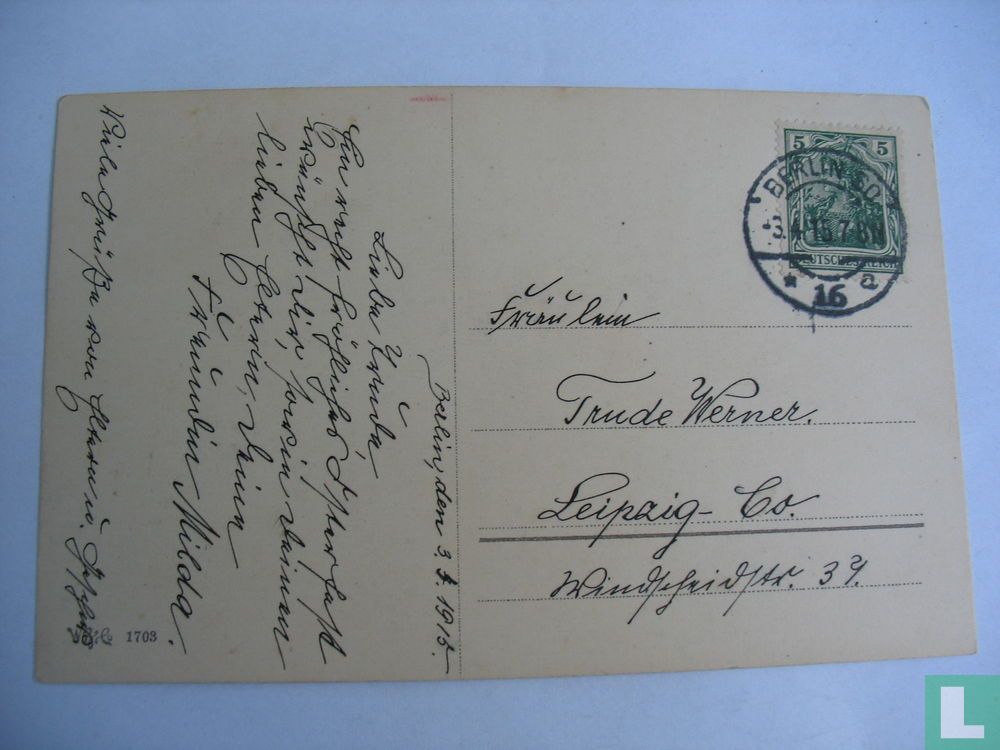 Berlin, den 3.4.1915.
Liebe Trude!
Ein recht fröhliches Osterfest
wünscht dir, sowie deinen
lieben Eltern, deine
Freundin Milda.
Viele Grüße von Eltern u.
1703
5 5
DEUTSCHES REICH
BERLIN SO
3.4.15.7-8N
* 16 a
Fräulein
Trude Werner.
Leipzig-Co.
Windscheidstr. 37.
L